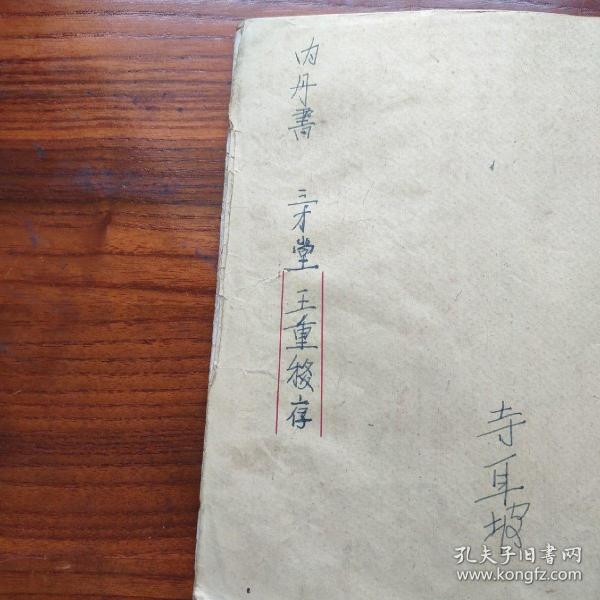 内丹書 三才堂 王重稳存
寺耳坡
孔夫子旧书网
www.kongfz.com